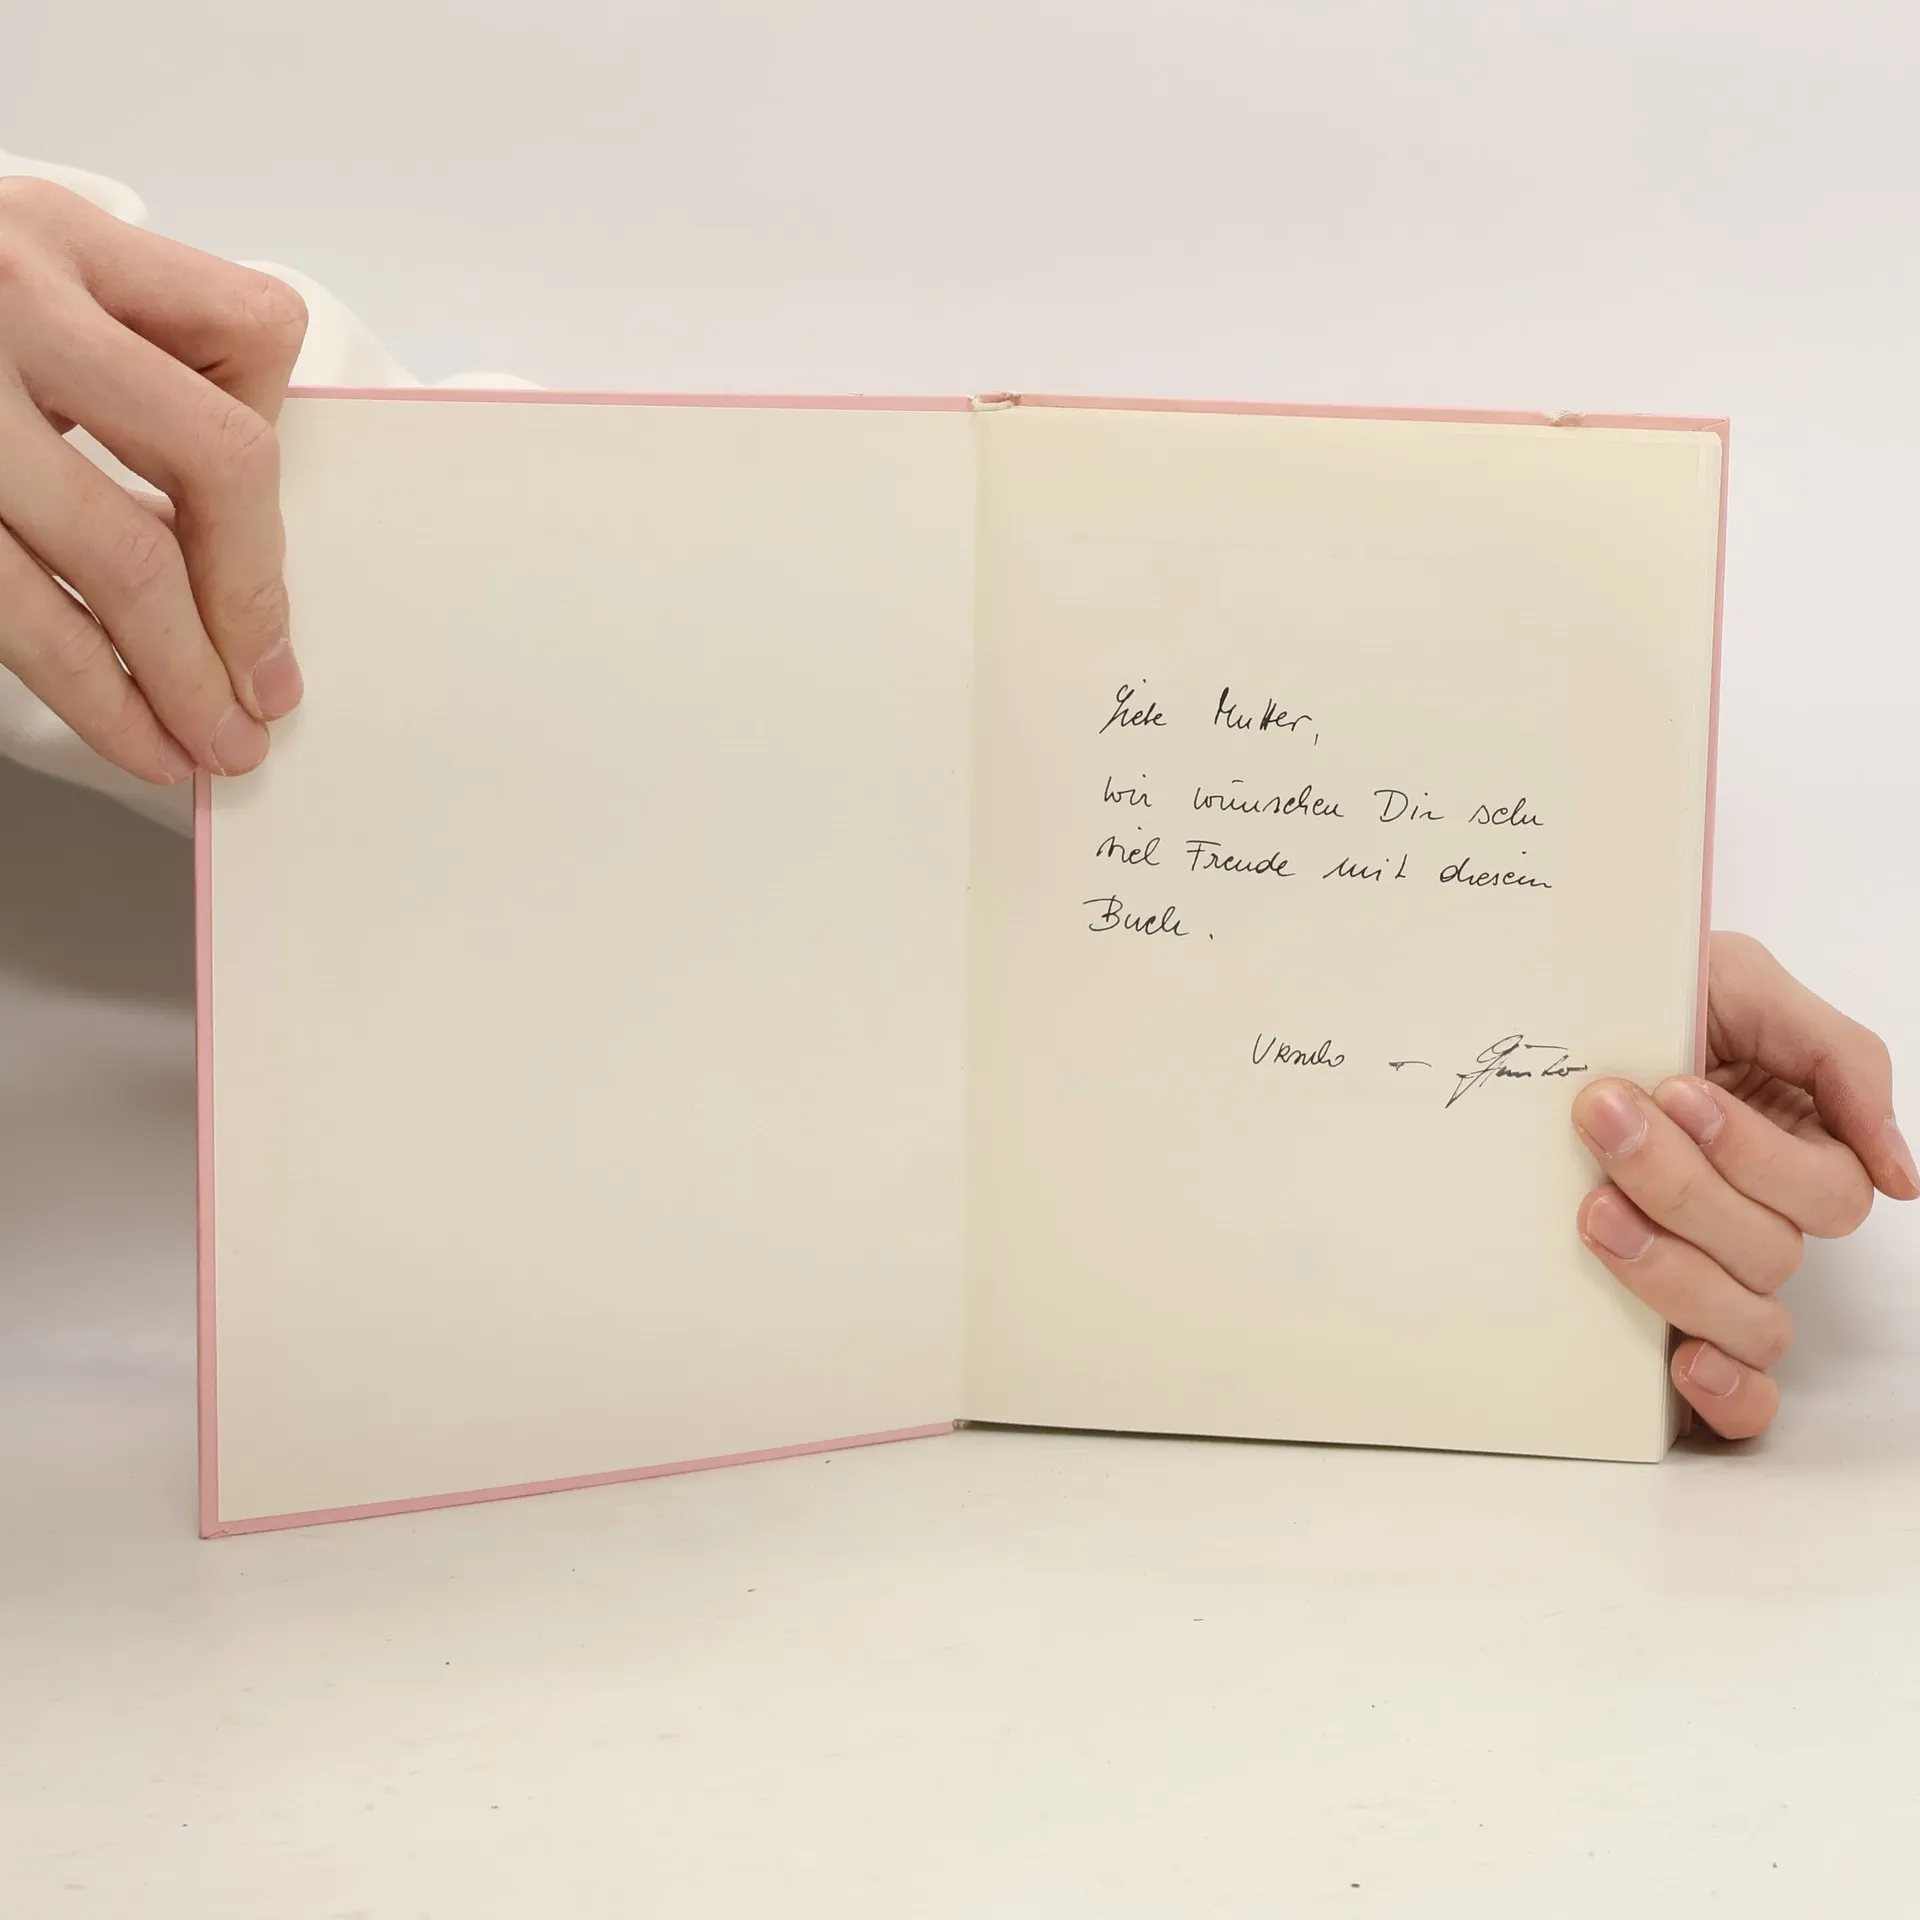 Liebe Mutter,
wir wünschen Dir sehr
viel Freude mit diesem
Buch.
Ursula -